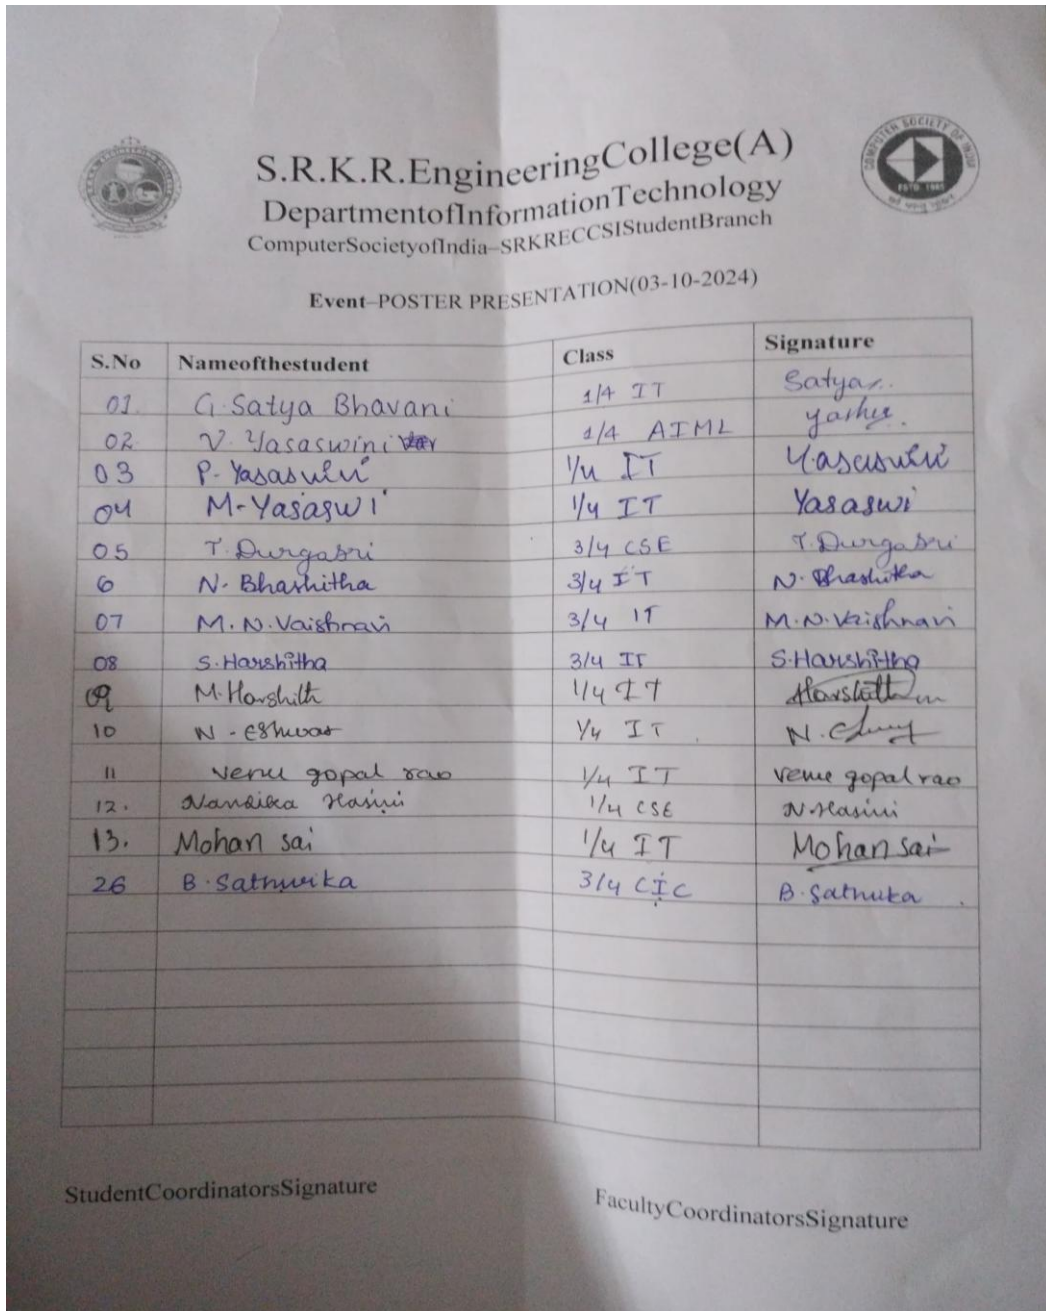 COMPUTER SOCIETY OF INDIA
ESTD. 1965
S.R.K.R.EngineeringCollege(A)
DepartmentofInformationTechnology
ComputerSocietyofIndia–SRKRECCSIStudentBranch
Event–POSTER PRESENTATION(03-10-2024)
S.No Nameofthestudent Class Signature
01 G.Satya Bhavani 1/4 IT Satya
02 V. Yasaswini 1/4 AIML
03 P-Yasasvini 1/4 IT Yasasvini
04 M-Yasaswi 1/4 IT Yasaswi
05 T.Durgasri 3/4 CSE T.Durgasri
6 N. Bhashitha 3/4 IT N. Bhashitha
07 M.N.Vaishnavi 3/4 IT M.N.Vaishnavi
08 S.Harshitha 3/4 IT S.Harshitha
09 M.Harshith 1/4 IT Harshith
10 N - Eshwar 1/4 IT N.
11 venu gopal rao 1/4 IT venu gopal rao
12. Nandika Hasini 1/4 CSE N.Hasini
13. Mohan sai 1/4 IT Mohan sai
26 B.Sathwika 3/4 CIC B.Sathwika
StudentCoordinatorsSignature FacultyCoordinatorsSignature